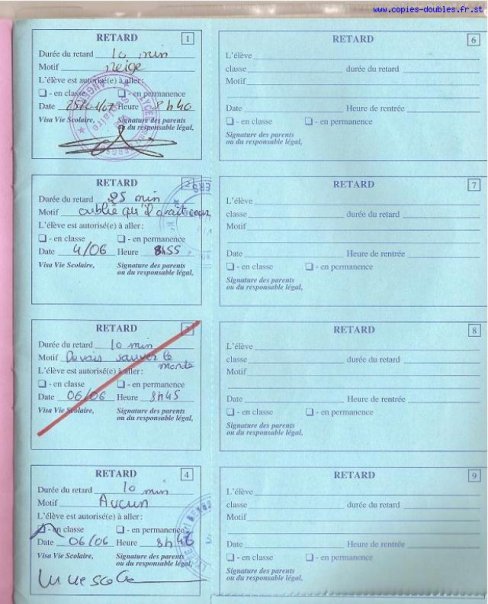 www.copies-doubles.fr.st
RETARD 1
Durée du retard 10 min
Motif neige
L'élève est autorisé(e) à aller:
- en classe - en permanence
Date Heure 8h40
Visa Vie Scolaire, Signature des parents
ou du responsable légal,
RETARD 2
Durée du retard 25 min
Motif oublié qu'il avait cour
L'élève est autorisé(e) à aller:
- en classe - en permanence
Date 4/06 Heure 8h55
Visa Vie Scolaire, Signature des parents
ou du responsable légal,
RETARD 3
Durée du retard 10 min
Motif Devais sauver le
monde
L'élève est autorisé(e) à aller:
- en classe - en permanence
Date 06/06 Heure 8h45
Visa Vie Scolaire, Signature des parents
ou du responsable légal,
RETARD 4
Durée du retard 10 min
Motif Aucun
L'élève est autorisé(e) à aller:
- en classe - en permanence
Date 06/06 Heure 8h46
Visa Vie Scolaire, Signature des parents
ou du responsable légal,
RETARD 6
L'élève
classe durée du retard
Motif
Date Heure de rentrée
- en classe - en permanence
Signature des parents
ou du responsable légal,
RETARD 7
L'élève
classe durée du retard
Motif
Date Heure de rentrée
- en classe - en permanence
Signature des parents
ou du responsable légal,
RETARD 8
L'élève
classe durée du retard
Motif
Date Heure de rentrée
- en classe - en permanence
Signature des parents
ou du responsable légal,
RETARD 9
L'élève
classe durée du retard
Motif
Date Heure de rentrée
- en classe - en permanence
Signature des parents
ou du responsable légal,